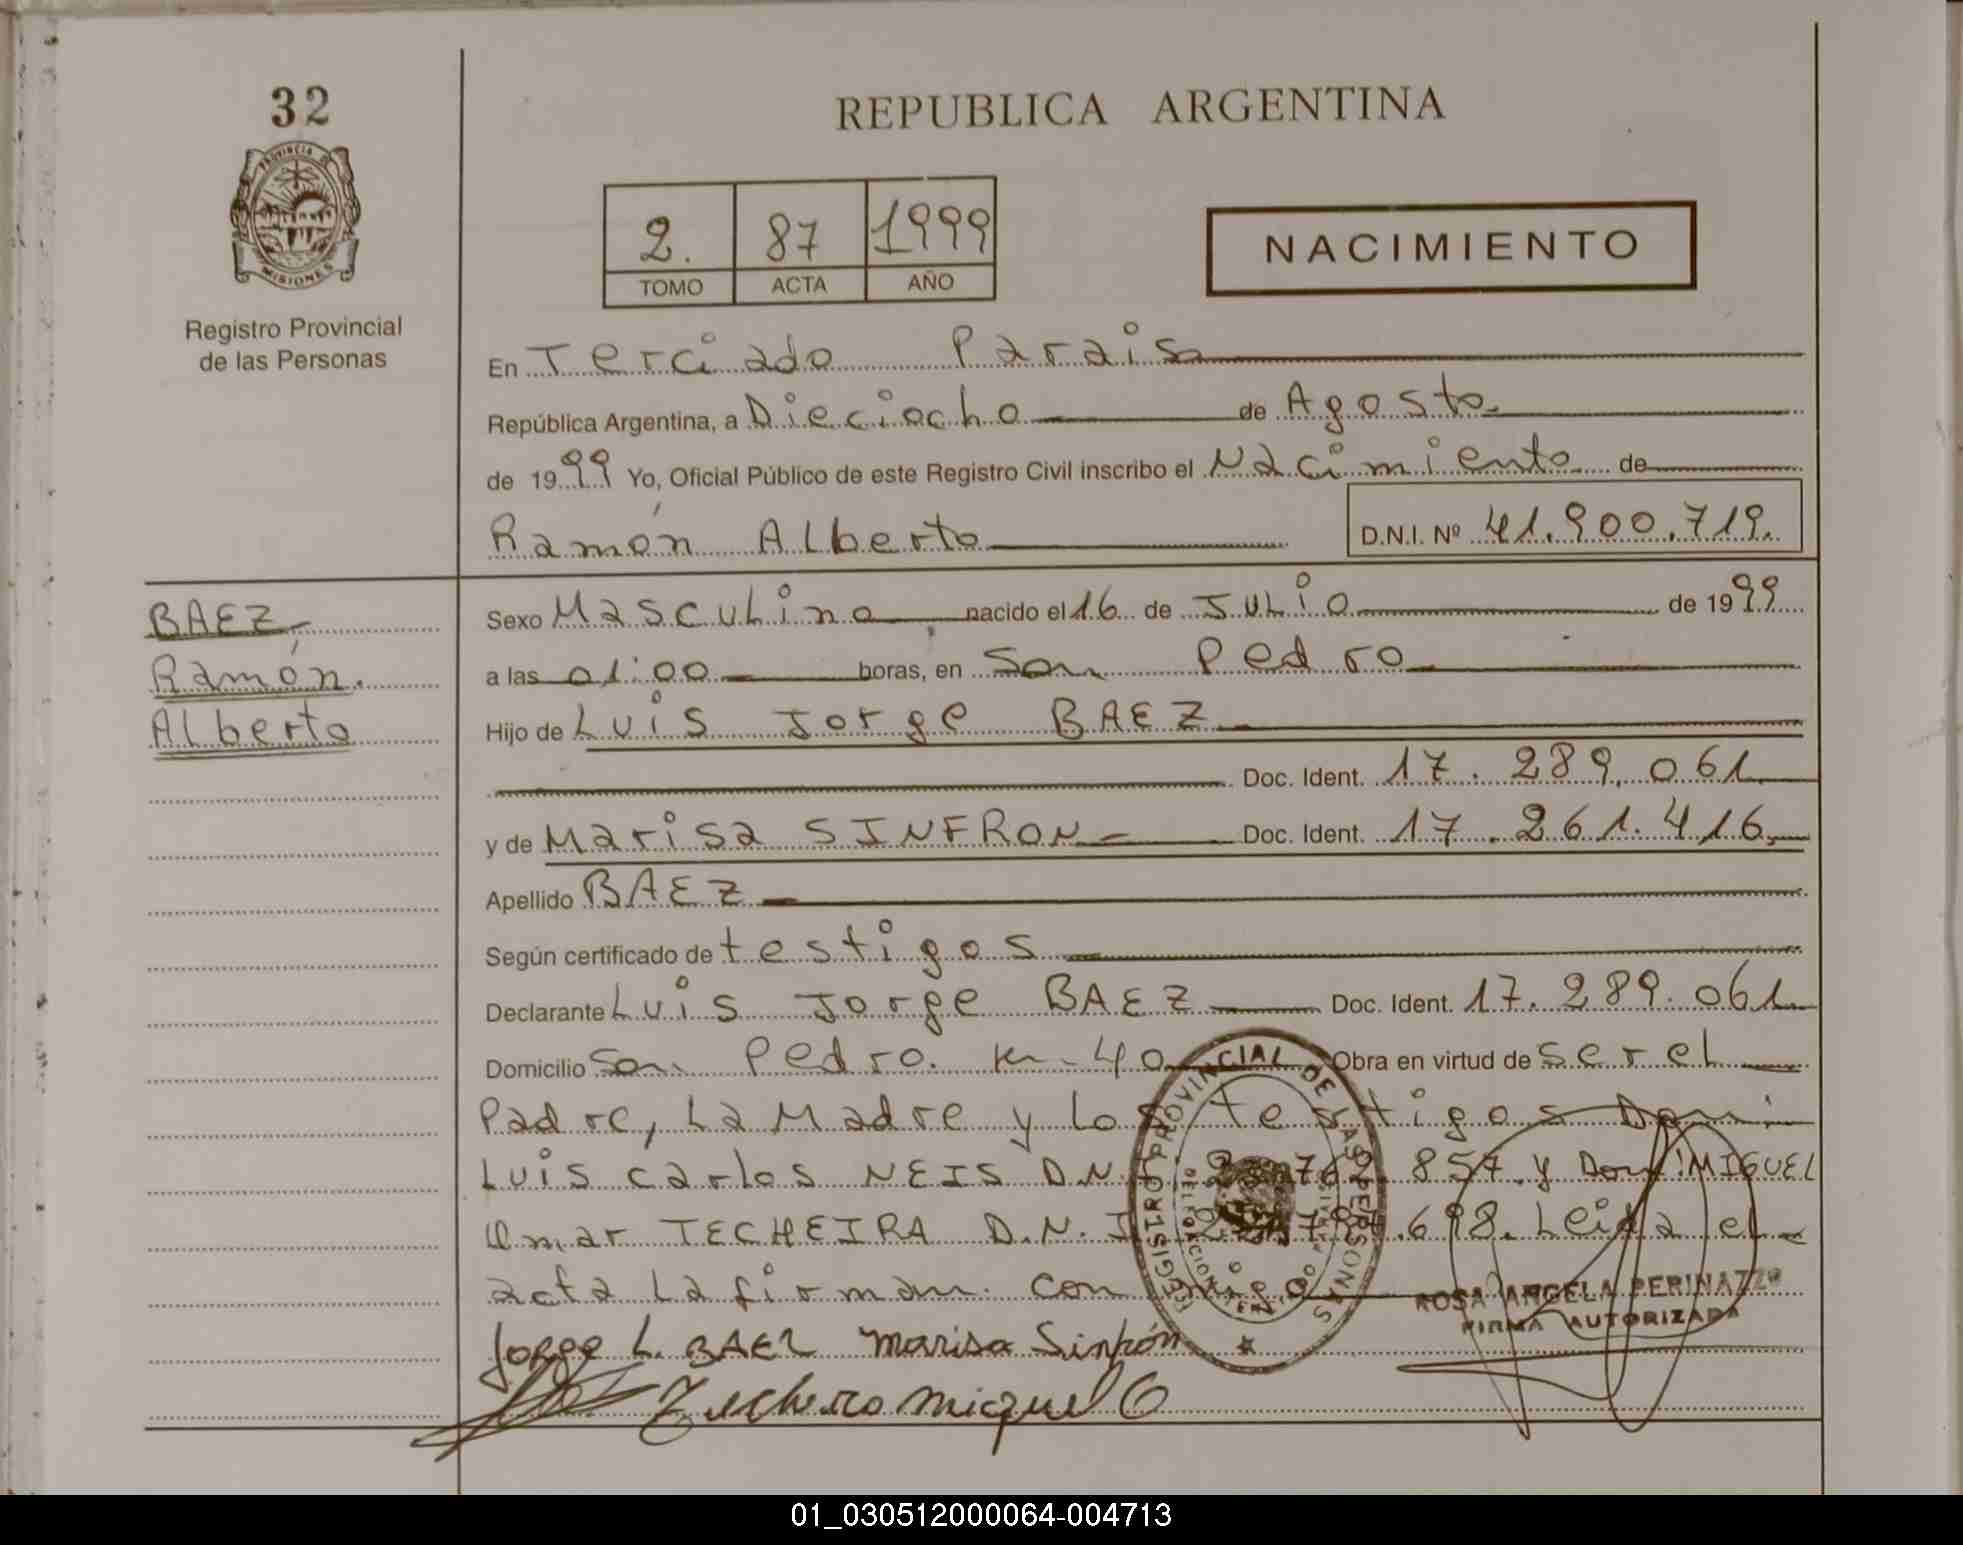 32
REPUBLICA ARGENTINA
PROVINCIA DE
MISIONES
Registro Provincial
de las Personas
2. 87 1999
TOMO ACTA AÑO
NACIMIENTO
En Terciado Parais
República Argentina, a Dieciocho de Agosto
de 1999 Yo, Oficial Público de este Registro Civil inscribo el Nacimiento de
Ramón Alberto
D.N.I. Nº 41.900.719.
BAEZ
Ramón.
Alberto
Sexo Masculino nacido el 16 de Julio de 1999
a las 01:00 horas, en San Pedro
Hijo de Luis Jorge BAEZ
Doc. Ident. 17.289.061
y de Marisa SINFRON Doc. Ident. 17.261.416
Apellido BAEZ
Según certificado de testigos
Declarante Luis Jorge BAEZ Doc. Ident. 17.289.061
Domicilio San Pedro. Km-40 Obra en virtud de ser el
Padre, La Madre y los testigos Don
Luis Carlos NEIS D.N. 857. y Don MIGUEL
Omar TECHEIRA D.N.I .698. Leida el
acta La firman con
REGISTRO PROVINCIAL DE LAS PERSONAS
ROSA ANGELA PERINAZZO
FIRMA AUTORIZADA
Jorge L. BAEZ Marisa
Miguel O
01_030512000064-004713